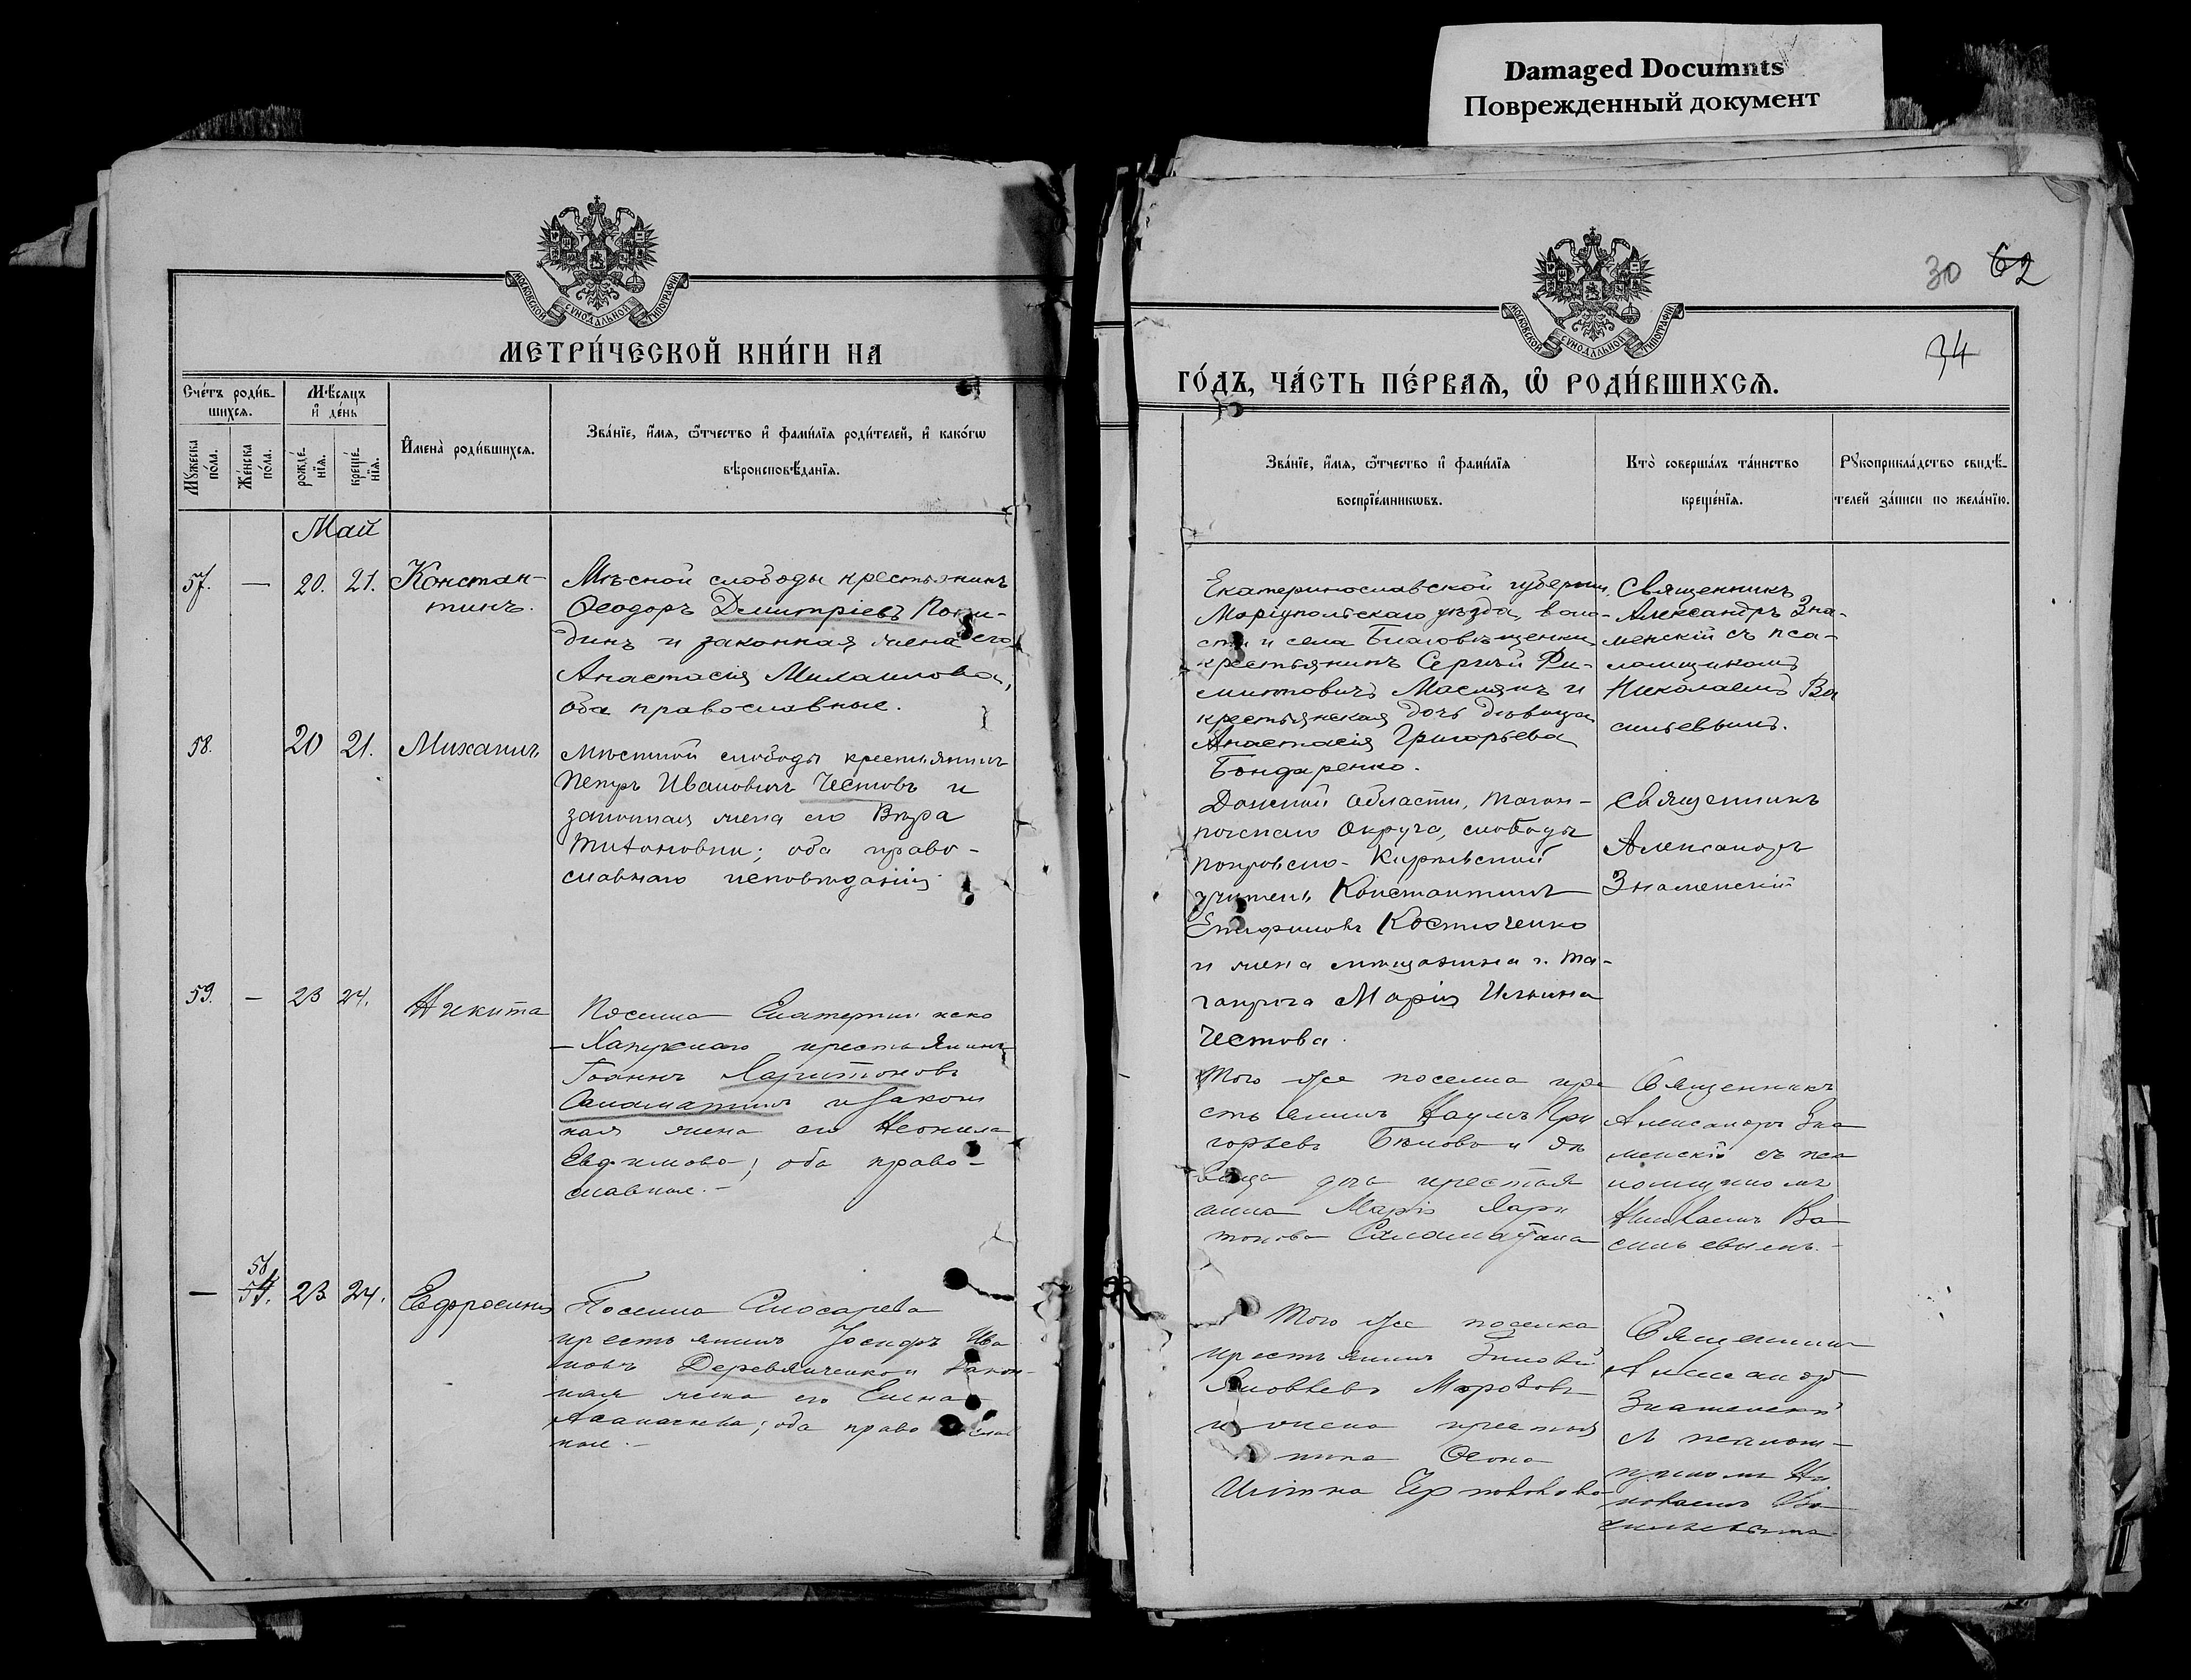 Damaged Documnts
Поврежденный документ
МОСКОВСКОЙ СѴНОДАЛЬНОЙ ТИПОГРАФІИ.
МЕТРИ́ЧЕСКОЙ КНИ́ГИ НА
Сче́тъ роди́в-
шихсѧ.
Мѣ́сѧцъ
и҆ де́нь
Мꙋ́жеска
по́ла.
Же́нска
по́ла.
рожде́-
нїѧ.
креще́-
нїѧ.
И҆мена̀ роди́вшихсѧ.
Зва́нїе, и҆́мѧ, ѻ҆́тчество и҆ фами́лїѧ роди́телей, и҆ како́гѡ
вѣроисповѣ́данїѧ.
Май
57. — 20. 21. Констан-
тинъ.
Мѣсной слободы крестьянинъ
Ѳеодоръ Димитріевъ
динъ и законная жена его
Анастасія Михаилова,
оба православные.
58. 20 21. Михаилъ
Мѣстной слободы крестьянинъ
Петръ Ивановичъ Честовъ и
законная жена его Вѣра
оба право-
славнаго исповѣданія
59. — 23 24. Никита
Поселка Екатерининско
- Хапрскаго крестьянинъ
Іоаннъ Харитоновъ
Саламатинъ и закон
ная жена его Неонила
Евфимова; оба право-
славные.-
— 58
57. 23 24. Евфросинія
Поселка Слюсарева
крестьянинъ Іосифъ Ива
новъ Деревянченко и закон-
ная жена его Елена
оба право слав
ные.-
МОСКОВСКОЙ СѴНОДАЛЬНОЙ ТИПОГРАФІИ.
30 62
34
ГО́ДЪ, ЧА́СТЬ ПЕ́РВАѦ, Ѡ҆ РОДИ́ВШИХСѦ.
Зва́нїе, и҆́мѧ, ѻ҆́тчество и҆ фами́лїѧ
воспрїе́мникѡвъ.
Кто̀ соверша́лъ та́инство
креще́нїѧ.
Рꙋкоприкла́дство свидѣ́-
телей за́писи по жела́нїю.
Екатеринославской губерніи,
Маріупольскаго уѣзда, воло-
сти и села Благовѣщенки
крестьянинъ Сергій Фи-
Маслякъ и
крестьянская дочь дѣвица
Анастасія Григорьева
Бондаренко.
Священникъ
Александръ Зна-
менскій съ пса-
ломщикомъ
Николаемъ Ва
сильевымъ.
Донской Области, Таган-
рогскаго Округа, слободы
Покровско-Кирѣевской
учитель Константинъ
Епифановъ Костюченко
и жена мѣщанина г. Та-
ганрога Марія Ильина
Честова.
Священникъ
Александръ
Знаменскій
Того же поселка кре
стьянинъ Наумъ Гри
горьевъ Бѣловъ и дѣ
вица дочь крестья
нина Марія Хари
тонова Саламатина
Священникъ
Александръ Зна
менскій съ пса
ломщикомъ
Николаемъ Ва
сильевымъ.-
Того же поселка
крестьянинъ Зиновій
Яковлевъ Морозовъ
и жена крестья
нина
Священникъ
Александръ
Знаменскій
съ псалом-
щикомъ Ни
колаемъ Ва
сильевымъ